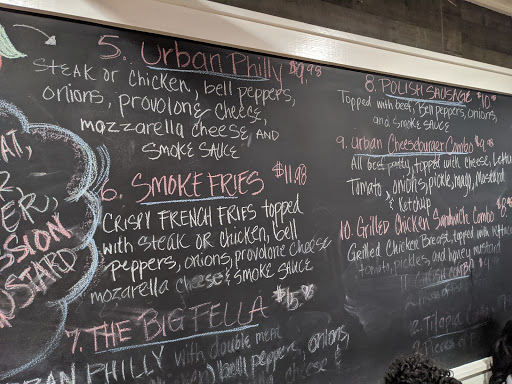 AT,
ER,
SSION
USTARD
5. Urban Philly $9.98
STEAK OR Chicken, bell peppers,
onions, provolone cheese,
mozzarella cheese, AND
SMOKE SAUCE
6. SMOKE FRIES $11.98
CRISPY FRENCH FRIES topped
with STEAK OR chicken, bell
peppers, onions, provolone cheese
mozarella cheese & SMOKE SAUCE
7. THE BIG FELLA
PHILLY with double meat
bell peppers, onions,
8. POLISH SAUSAGE
Topped with beef, Bell peppers, onions,
and SMOKE SAUCE
9. Urban Cheeseburger Combo
All beef patty, topped with cheese, Lettu
Tomato, onions, pickle, mayo, mustard
& Ketchup
10. Grilled Chicken Sandwich Combo
Grilled Chicken Breast, topped with
tomato, pickles, and honey mustard
12. Tilapia